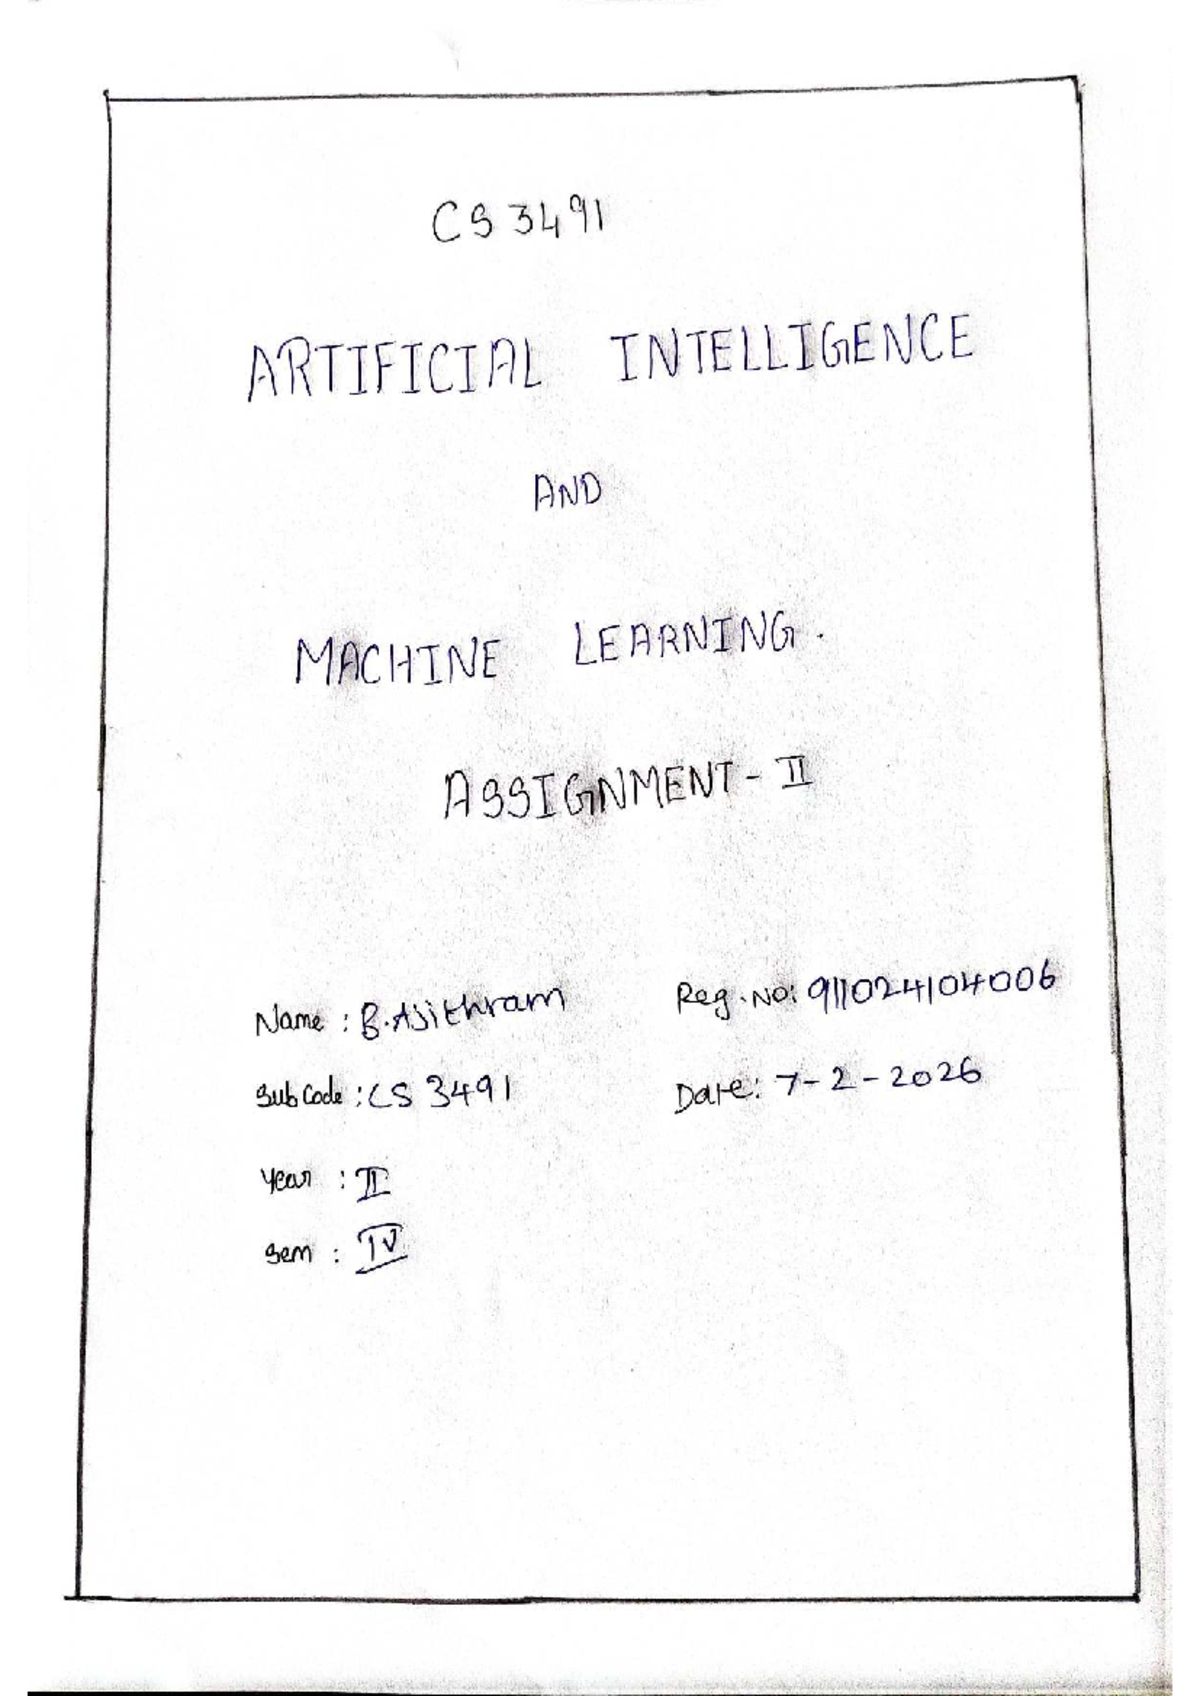 CS 3491
ARTIFICIAL INTELLIGENCE
AND
MACHINE LEARNING.
ASSIGNMENT - II
Name : B.Ajithram Reg.No: 911024104006
Sub Code : CS 3491 Date: 7-2-2026
Year : II
Sem : IV